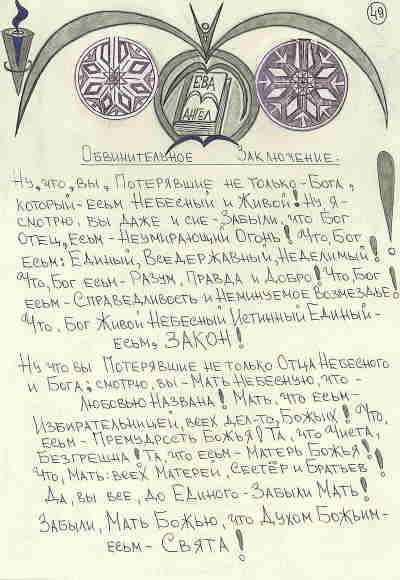 49
ЕВА
АНГЕЛ
ОБВИНИТЕЛЬНОЕ ЗАКЛЮЧЕНИЕ.
НУ, ЧТО, ВЫ, ПОТЕРЯВШИЕ НЕ ТОЛЬКО-БОГА,
КОТОРЫЙ-ЕСЬМ НЕБЕСНЫЙ И ЖИВОЙ! НУ, Я-
СМОТРЮ, ВЫ ДАЖЕ И СИЕ-ЗАБЫЛИ, ЧТО БОГ
ОТЕЦ, ЕСЬМ-НЕУМИРАЮЩИЙ ОГОНЬ! ЧТО, БОГ
ЕСЬМ: ЕДИНЫЙ, ВСЕДЕРЖАВНЫЙ, НЕДЕЛИМЫЙ!
ЧТО, БОГ ЕСЬМ-РАЗУМ, ПРАВДА И ДОБРО! ЧТО БОГ
ЕСЬМ-СПРАВЕДЛИВОСТЬ И НЕМИНУЕМОЕ ВОЗМЕЗДЬЕ!
ЧТО, БОГ ЖИВОЙ НЕБЕСНЫЙ ИСТИННЫЙ ЕДИНЫЙ-
ЕСЬМ, ЗАКОН!
НУ ЧТО ВЫ ПОТЕРЯВШИЕ НЕ ТОЛЬКО ОТЦА НЕБЕСНОГО
И БОГА; СМОТРЮ, ВЫ-МАТЬ НЕБЕСНУЮ, ЧТО-
ЛЮБОВЬЮ НАЗВАНА! МАТЬ, ЧТО ЕСЬМ-
ИЗБИРАТЕЛЬНИЦЕЙ, ВСЕХ ДЕЛ-ТО, БОЖЬИХ! ЧТО,
ЕСЬМ-ПРЕМУДРОСТЬ БОЖЬЯ! ТА, ЧТО ЧИСТА,
БЕЗГРЕШНА! ТА, ЧТО ЕСЬМ-МАТЕРЬ БОЖЬЯ!
ЧТО, МАТЬ: ВСЕХ МАТЕРЕЙ, СЕСТЁР И БРАТЬЕВ!
ДА, ВЫ ВСЕ, ДО ЕДИНОГО-ЗАБЫЛИ МАТЬ!
ЗАБЫЛИ, МАТЬ БОЖЬЮ, ЧТО ДУХОМ БОЖЬИМ-
ЕСЬМ-СВЯТА!